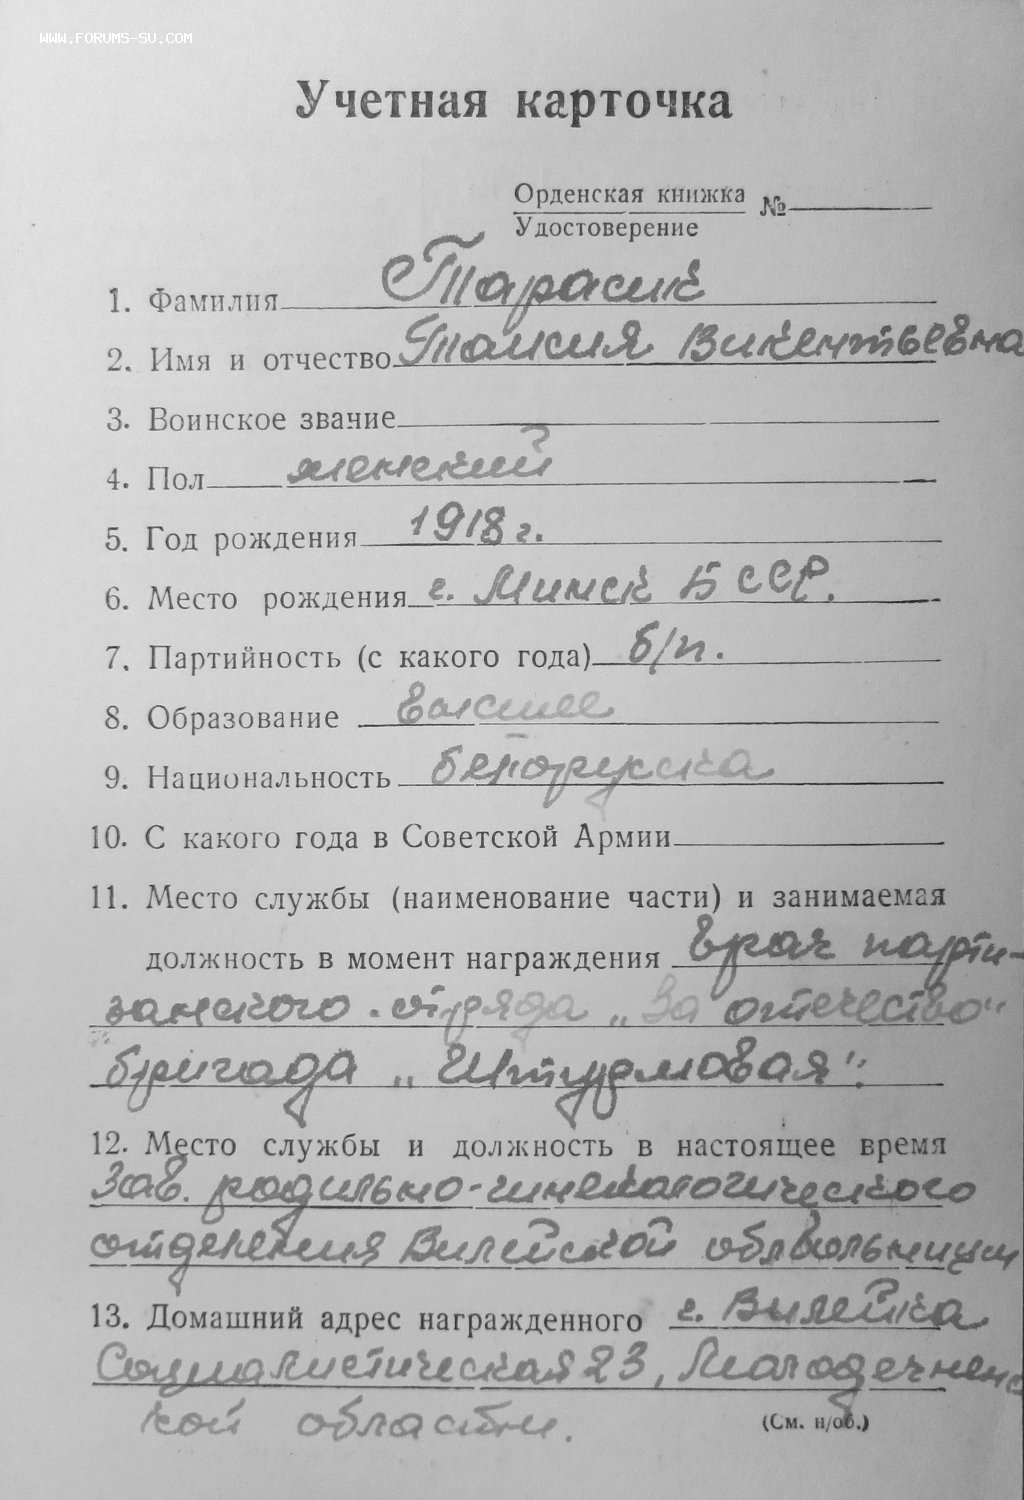 WWW.FORUMS-SU.COM
Учетная карточка
Орденская книжка №
Удостоверение
1. Фамилия Тарасик
2. Имя и отчество Таисия Викентьевна
3. Воинское звание
4. Пол женский
5. Год рождения 1918 г.
6. Место рождения г. Минск БССР.
7. Партийность (с какого года) б/п.
8. Образование высшее
9. Национальность белоруска
10. С какого года в Советской Армии
11. Место службы (наименование части) и занимаемая
должность в момент награждения врач парти-
занского отряда „За отечество“
бригада „Штурмовая“.
12. Место службы и должность в настоящее время
Зав. родильно-гинекологического
отделения Вилейской облбольницы
13. Домашний адрес награжденного г. Вилейка
Социалистическая 23, Молодечненс
кой области.
(См. н/об.)